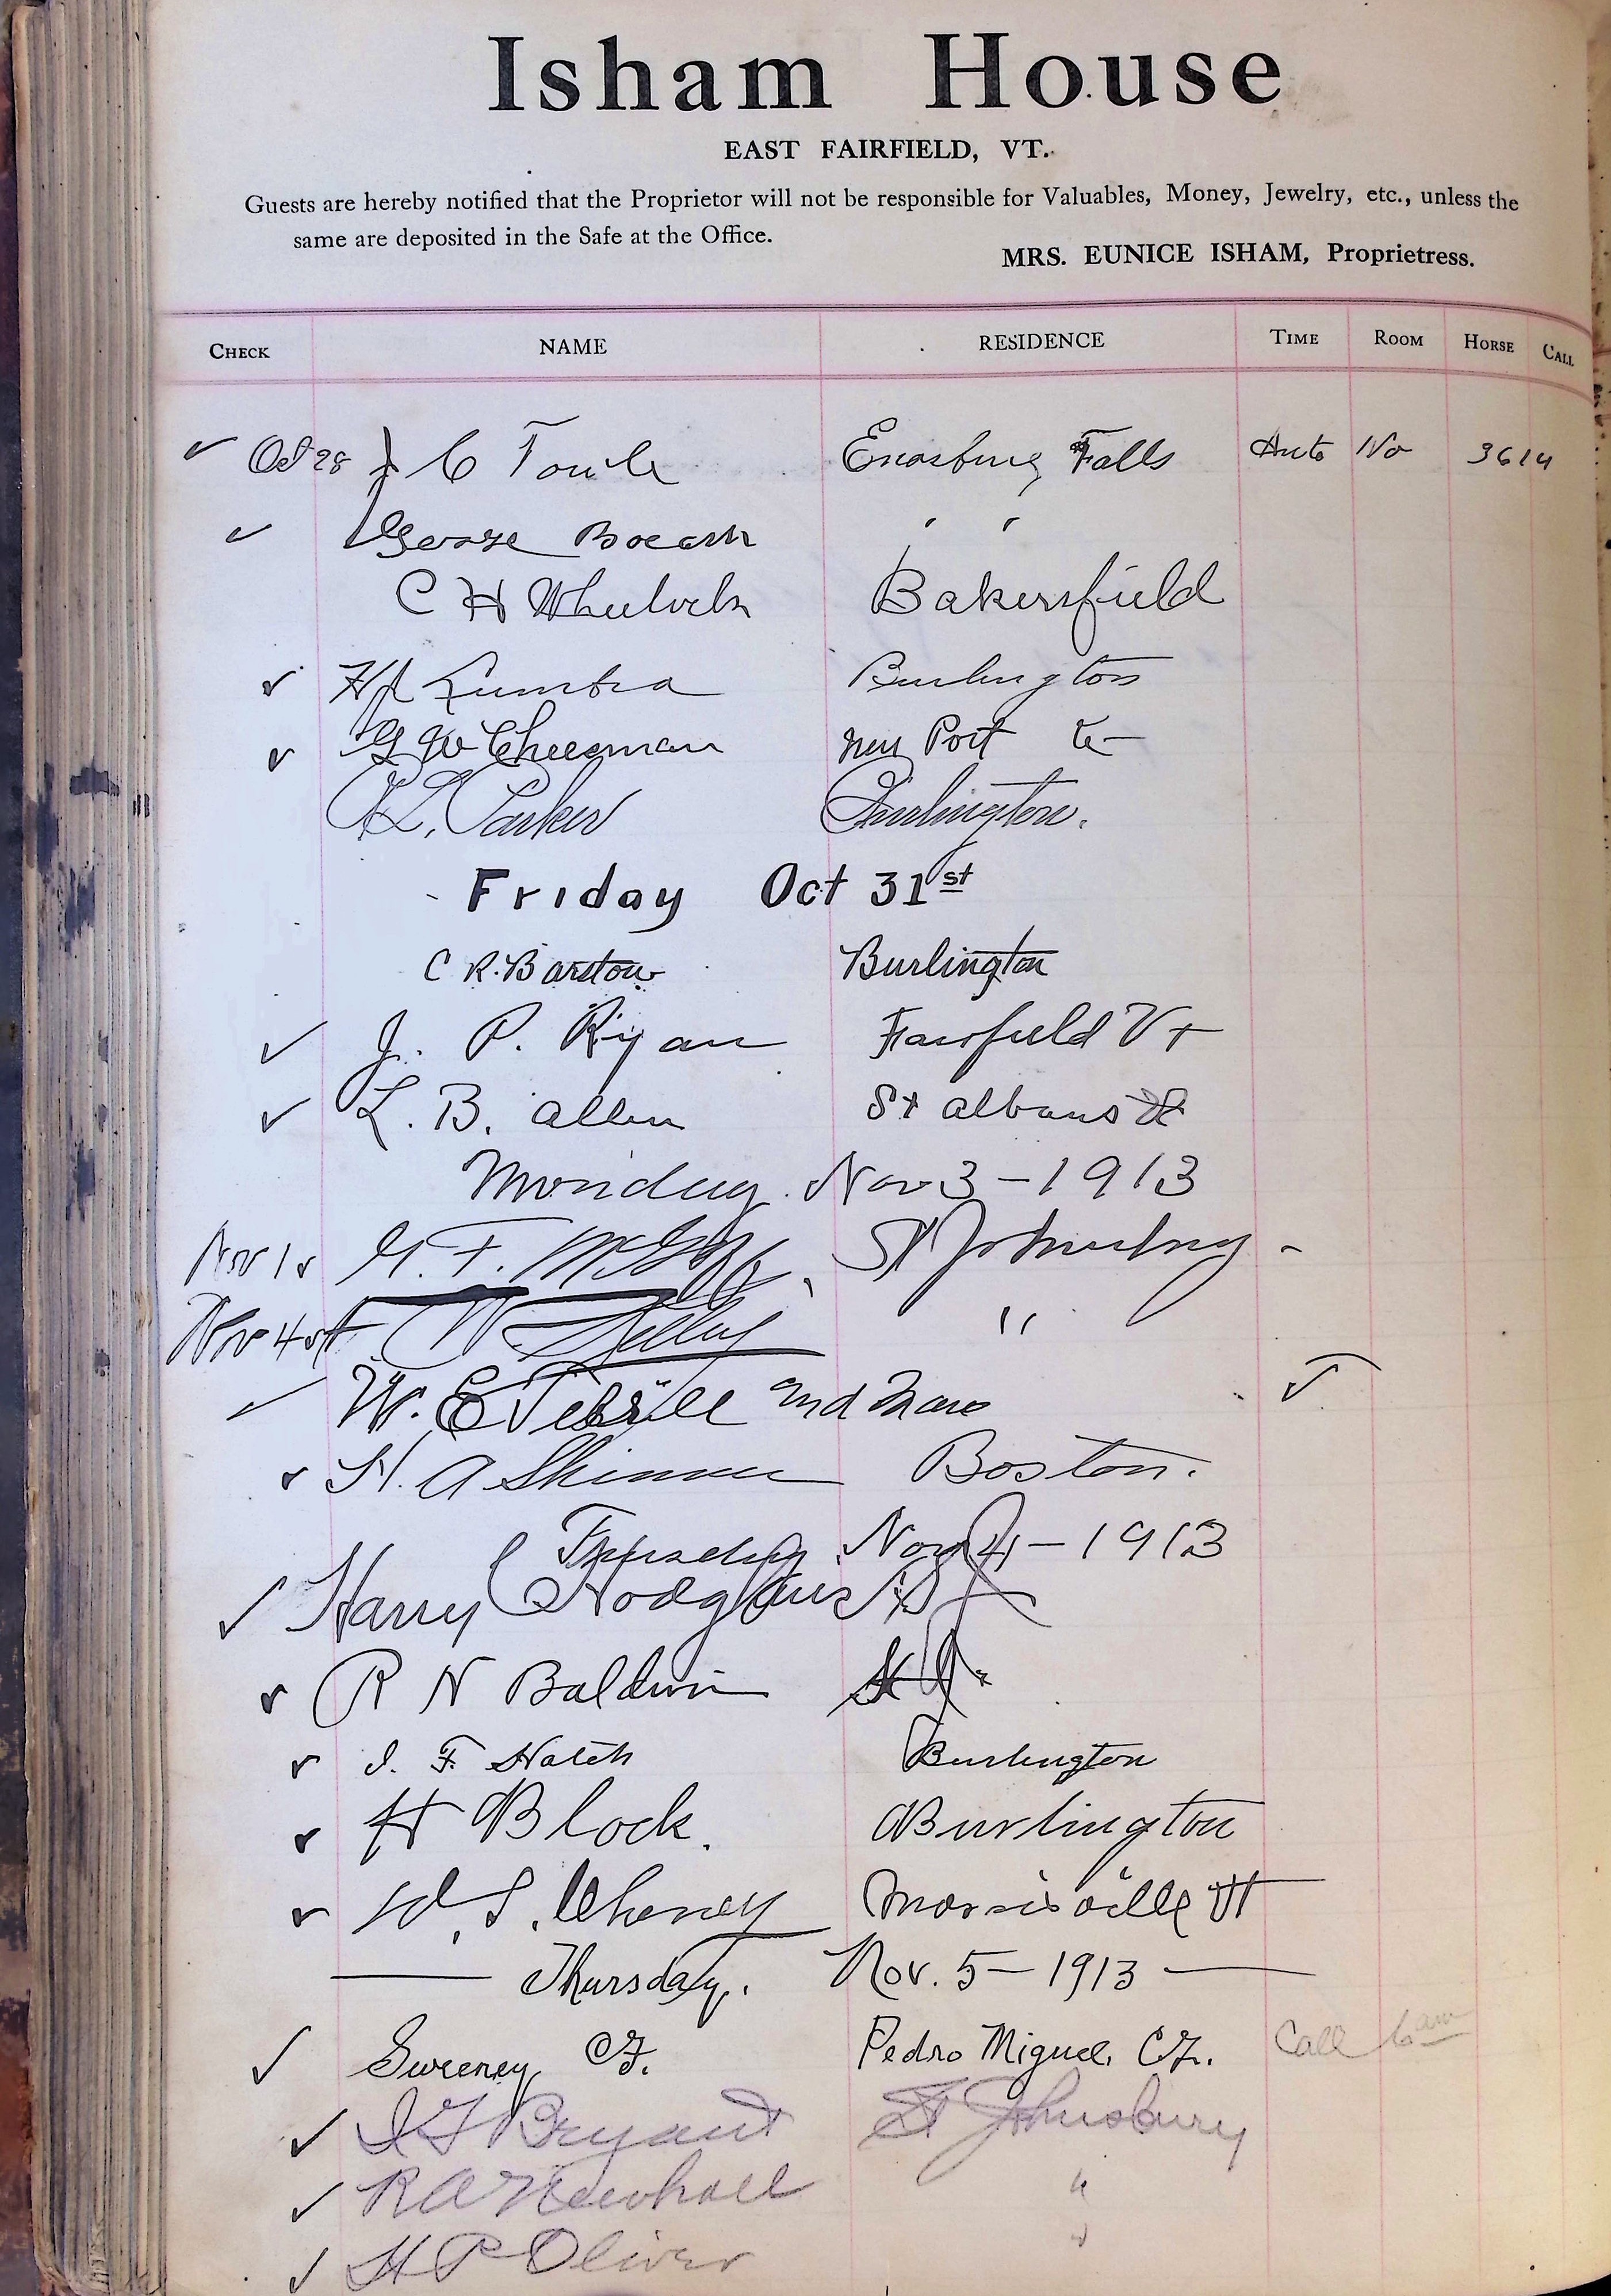 Isham House
EAST FAIRFIELD, VT.
Guests are hereby notified that the Proprietor will not be responsible for Valuables, Money, Jewelry, etc., unless the
same are deposited in the Safe at the Office.
MRS. EUNICE ISHAM, Proprietress.
CHECK NAME RESIDENCE TIME ROOM HORSE CALL
✓ Oct 28 C Towle Enosburg Falls Auto No 3614
✓ George " "
C H Wheelock Bakersfield
✓ Lumbra Burlington
✓ G W Cheesman New Port Vt
L. Parker Burlington.
- Friday Oct 31st
C R. Barstow Burlington
✓ J. P. Ryan Fairfield Vt
✓ L. B. Allen St Albans Vt
Monday Nov 3 - 1913
Nov 1 G. F. St Johnsbury -
Nov 4 W ''
✓ W. E and ✓
✓ H. A Skinner Boston.
Nov 4 - 1913
✓ Harry Hodgkins St J
✓ R N Baldwin St J.
✓ I. F. Hatch Burlington
✓ H Block. Burlington
✓ W. S. Cheney Morrisville Vt
— Thursday. Nov. 5 - 1913 —
✓ Sweeney, C.F. Pedro Miguel, C.Z. Call 6 am
✓ Bryant St Johnsbury
✓ R A Newhall "
✓ H P Oliver "